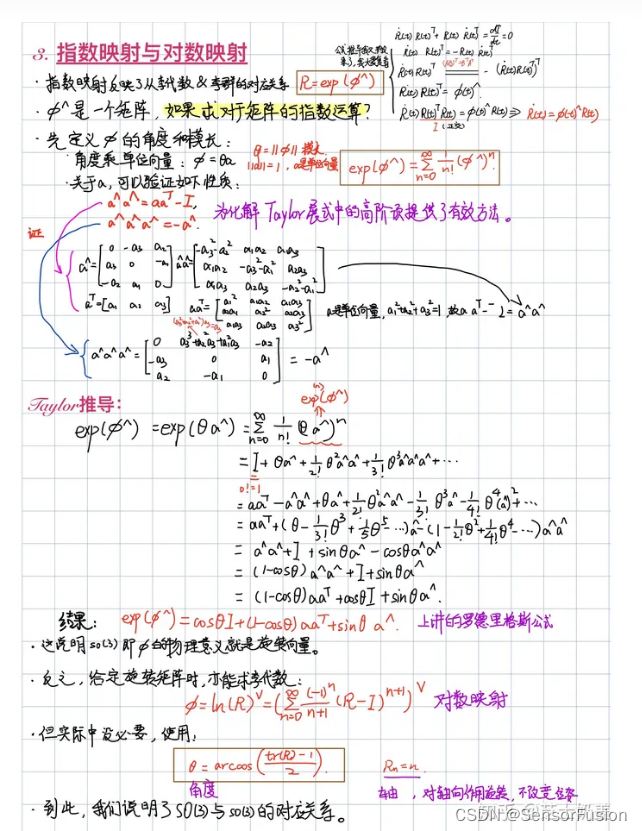 3. 指数映射与对数映射
· 指数映射反映了从李代数&李群的对应关系 R=exp(φ^)
Ṙ(t) R(t)ᵀ + R(t) Ṙ(t)ᵀ = = 0
Ṙ(t) R(t)ᵀ = -R(t) Ṙ(t)ᵀ
Ṙ(t)R(t)ᵀ = -(Ṙ(t)R(t)ᵀ)ᵀ
Ṙ(t)R(t)ᵀ = φ(t)^
Ṙ(t)R(t)ᵀR(t) = φ(t)^R(t) ⇒ Ṙ(t)=φ(t)^R(t)
I (正交)
· φ^是一个矩阵,如果求对于矩阵的指数运算?
· 先定义φ的角度和模长:
角度乘单位向量: φ=θa
θ=||φ|| 模长
||a||=1, a是单位向量
exp(φ^)=∑_{n=0}^{∞} 1/n! (φ^)ⁿ.
· 关于a,可以验证如下性质:
a^a^=aaᵀ-I,
a^a^a^=-a^.
为化解Taylor展式中的高阶项提供了有效方法。
证
a^=[0 -a₃ a₂
a₃ 0 -a₁
-a₂ a₁ 0]
a^a^=[-a₃²-a₂² a₁a₂ a₁a₃
a₁a₂ -a₃²-a₁² a₂a₃
a₁a₃ a₂a₃ -a₂²-a₁²]
aᵀ=[a₁ a₂ a₃]
aaᵀ=[a₁² a₁a₂ a₁a₃
a₂a₁ a₂² a₂a₃
a₁a₃ a₂a₃ a₃²]
a是单位向量, a₁²+a₂²+a₃²=1, 故 a aᵀ - I = a^a^
(a₃²+a₂²+a₁²)a₃=a₃
a^a^a^=[0 a₃³+a₂²a₃+a₁²a₃ -a₂
-a₃ 0 a₁
a₂ -a₁ 0] = -a^
Taylor推导:
exp(φ^)
exp(φ^) = exp(θa^) = ∑_{n=0}^{∞} 1/n! (θa^)ⁿ
= I + θa^ + 1/2! θ²a^a^ + 1/3! θ³a^a^a^ + ···
0!=1
= aaᵀ - a^a^ + θa^ + 1/2! θ²a^a^ - 1/3! θ³a^ - 1/4! θ⁴(a^)² + ···
= aaᵀ + (θ - 1/3! θ³ + 1/5! θ⁵ - ···)a^ - (1 - 1/2! θ² + 1/4! θ⁴ - ···)a^a^
= a^a^ + I + sinθa^ - cosθa^a^
= (1-cosθ)a^a^ + I + sinθa^
= (1-cosθ)aaᵀ + cosθI + sinθa^.
结果: exp(φ^)=cosθI+(1-cosθ)aaᵀ+sinθ a^. 上讲的罗德里格斯公式
· 这说明so(3)即φ的物理意义就是旋转向量。
· 反之,给定旋转矩阵时,亦能求李代数:
φ=ln(R)ᵛ=(∑_{n=0}^{∞} (-1)ⁿ/n+1 (R-I)ⁿ⁺¹)ᵛ 对数映射
· 但实际中没必要,使用:
θ=arccos(tr(R)-1/2).
角度
Rn=n.
转轴,对轴向作用旋转,不改变位姿
· 到此,我们说明了SO(3)与so(3)的对应关系。
CSDN @SensorFusion